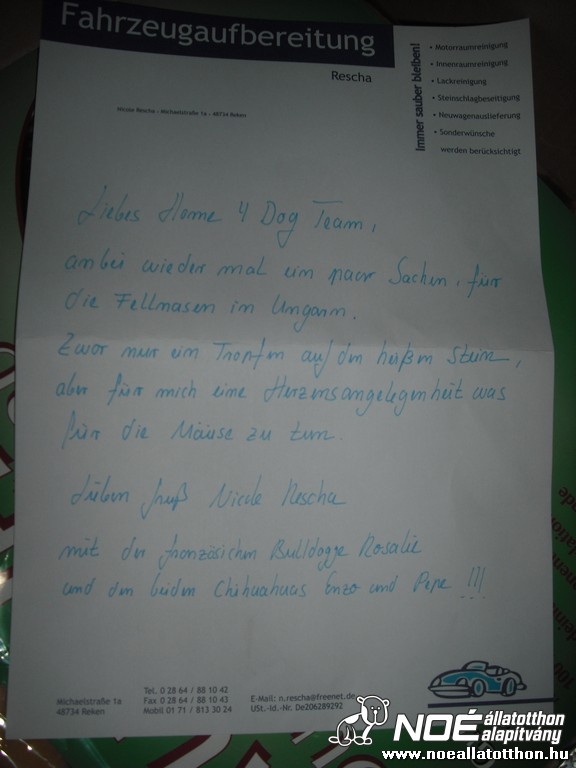 Fahrzeugaufbereitung
Rescha
Immer sauber bleiben!
• Motorraumreinigung
• Innenraumreinigung
• Lackreinigung
• Steinschlagbeseitigung
• Neuwagenauslieferung
• Sonderwünsche
werden berücksichtigt
Nicole Rescha - Michaelstraße 1a - 48734 Reken
Liebes Home 4 Dog Team,
anbei wieder mal ein paar Sachen, für
die Fellnasen in Ungarn.
Zwar nur ein Tropfen auf den heißen Stein,
aber für mich eine Herzensangelegenheit was
für die Mäuse zu tun.
Lieben Gruß Nicole Rescha
mit der französichen Bulldogge Rosalie
und den beiden Chihuahuas Enzo und Pepe !!!
Michaelstraße 1a
48734 Reken
Tel. 0 28 64 / 88 10 42
Fax 0 28 64 / 88 10 43
Mobil 01 71 / 813 30 24
E-Mail: n.rescha@freenet.de
USt.-Id.-Nr. De206289292
NOÉ állatotthon
alapítvány
www.noeallatotthon.hu